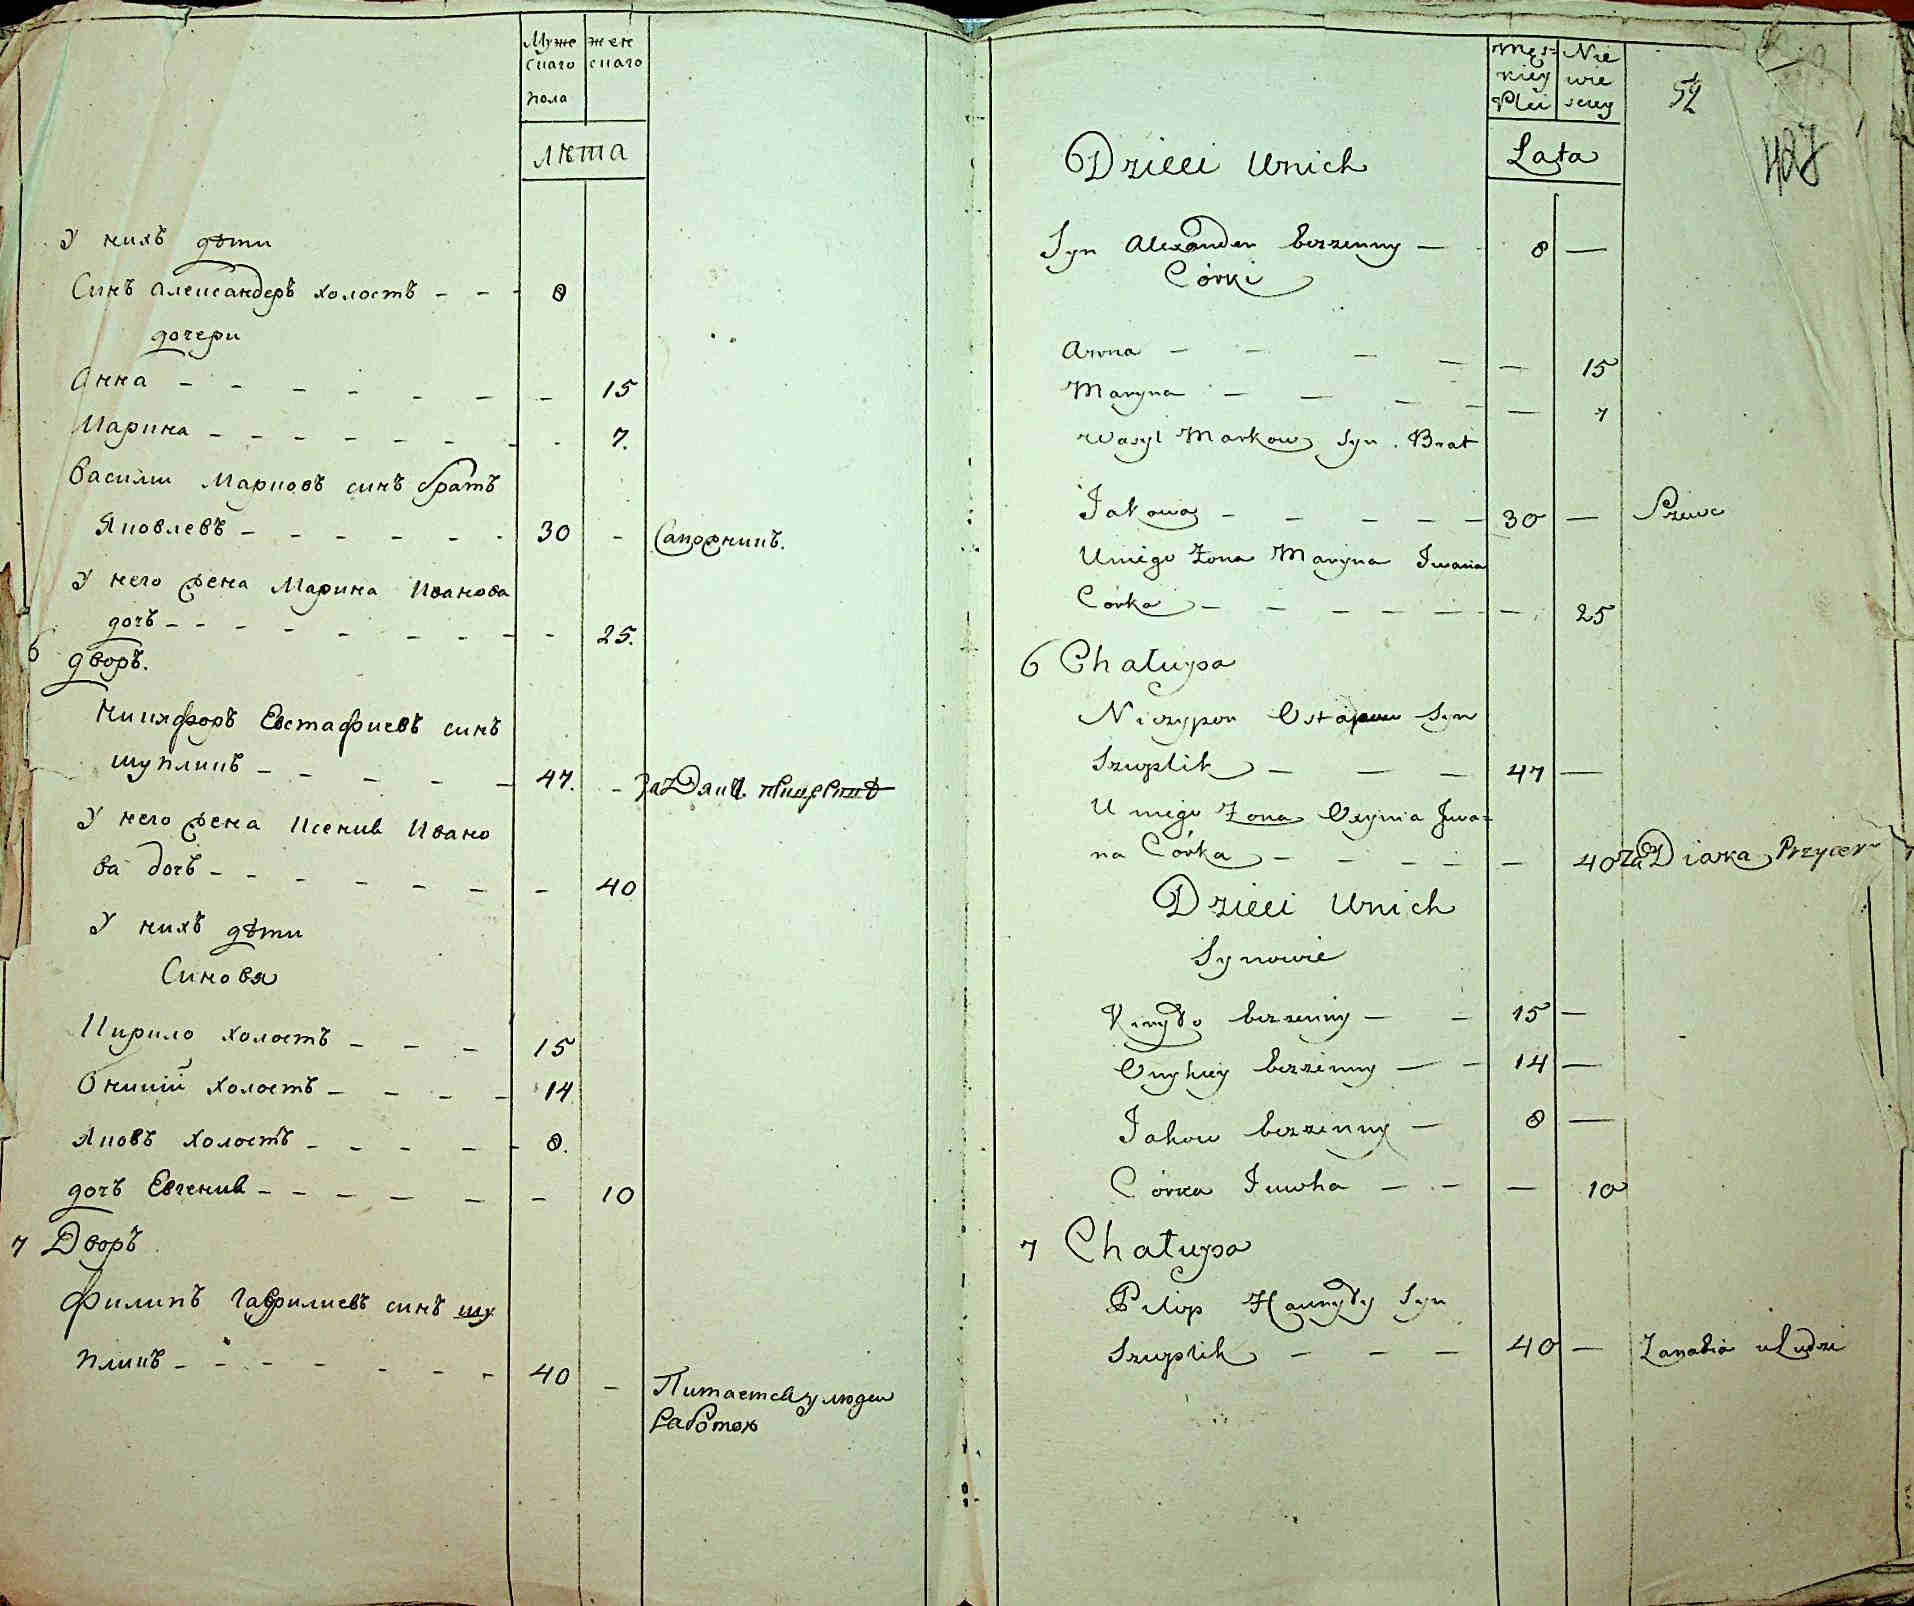 Муже жен
снаго снаго
пола
лѣта
У нихъ дѣти
Синъ александеръ холостъ - - - 8
дочери
Анна - - - - - - - 15
Марина - - - - - - - - 7.
Василии Марковъ синъ братъ
Яковлевъ - - - - - - 30 - Сапожникъ.
У него жена Марина Иванова
дочъ - - - - - - - - - 25.
6 дворъ.
Никифоръ Евстафиевъ синъ
шупликъ - - - - - 47. -
У него жена Ксения Ивано
ва дочъ - - - - - - - - 40
У нихъ дѣти
Синовя
Кирило холостъ - - - 15
Оникий холостъ - - - - 14
Яковъ холостъ - - - - - 8.
дочъ Евгения - - - - - - - 10
7 Дворъ
Филипъ Гаврилиевъ синъ шу
пликъ - - - - - - - 40 - Питается у людеи
работою
Męs- Nie
kiey wie
Płci sciey
Lata
Dzieci Unich
Syn Alexander bezzenny — 8 —
Córki
Anna — — — — — 15
Maryna — — — — — 7
Wasyl Markow Syn Brat
Jakowa — — — — — 30 — Szewc
Uniego Zona Maryna Iwana
Córka — — — — — — — 25
6 Chałupa
Niczypor Ostapow Syn
Szuplik — — — 47 —
U niego Zona Oxynia Iwa-
na Córka — — — — — — 40 Za Diaka Przycer
Dzieci Unich
Synowie
Kiryło bezzenny — — 15 —
Onykiey bezzenny — — 14 —
Jakow bezzenny — 8 —
Córka Iuwha — — — 10
7 Chałupa
Pilip Hawryły Syn
Szuplik — — — 40 — Zarabia u Ludzi